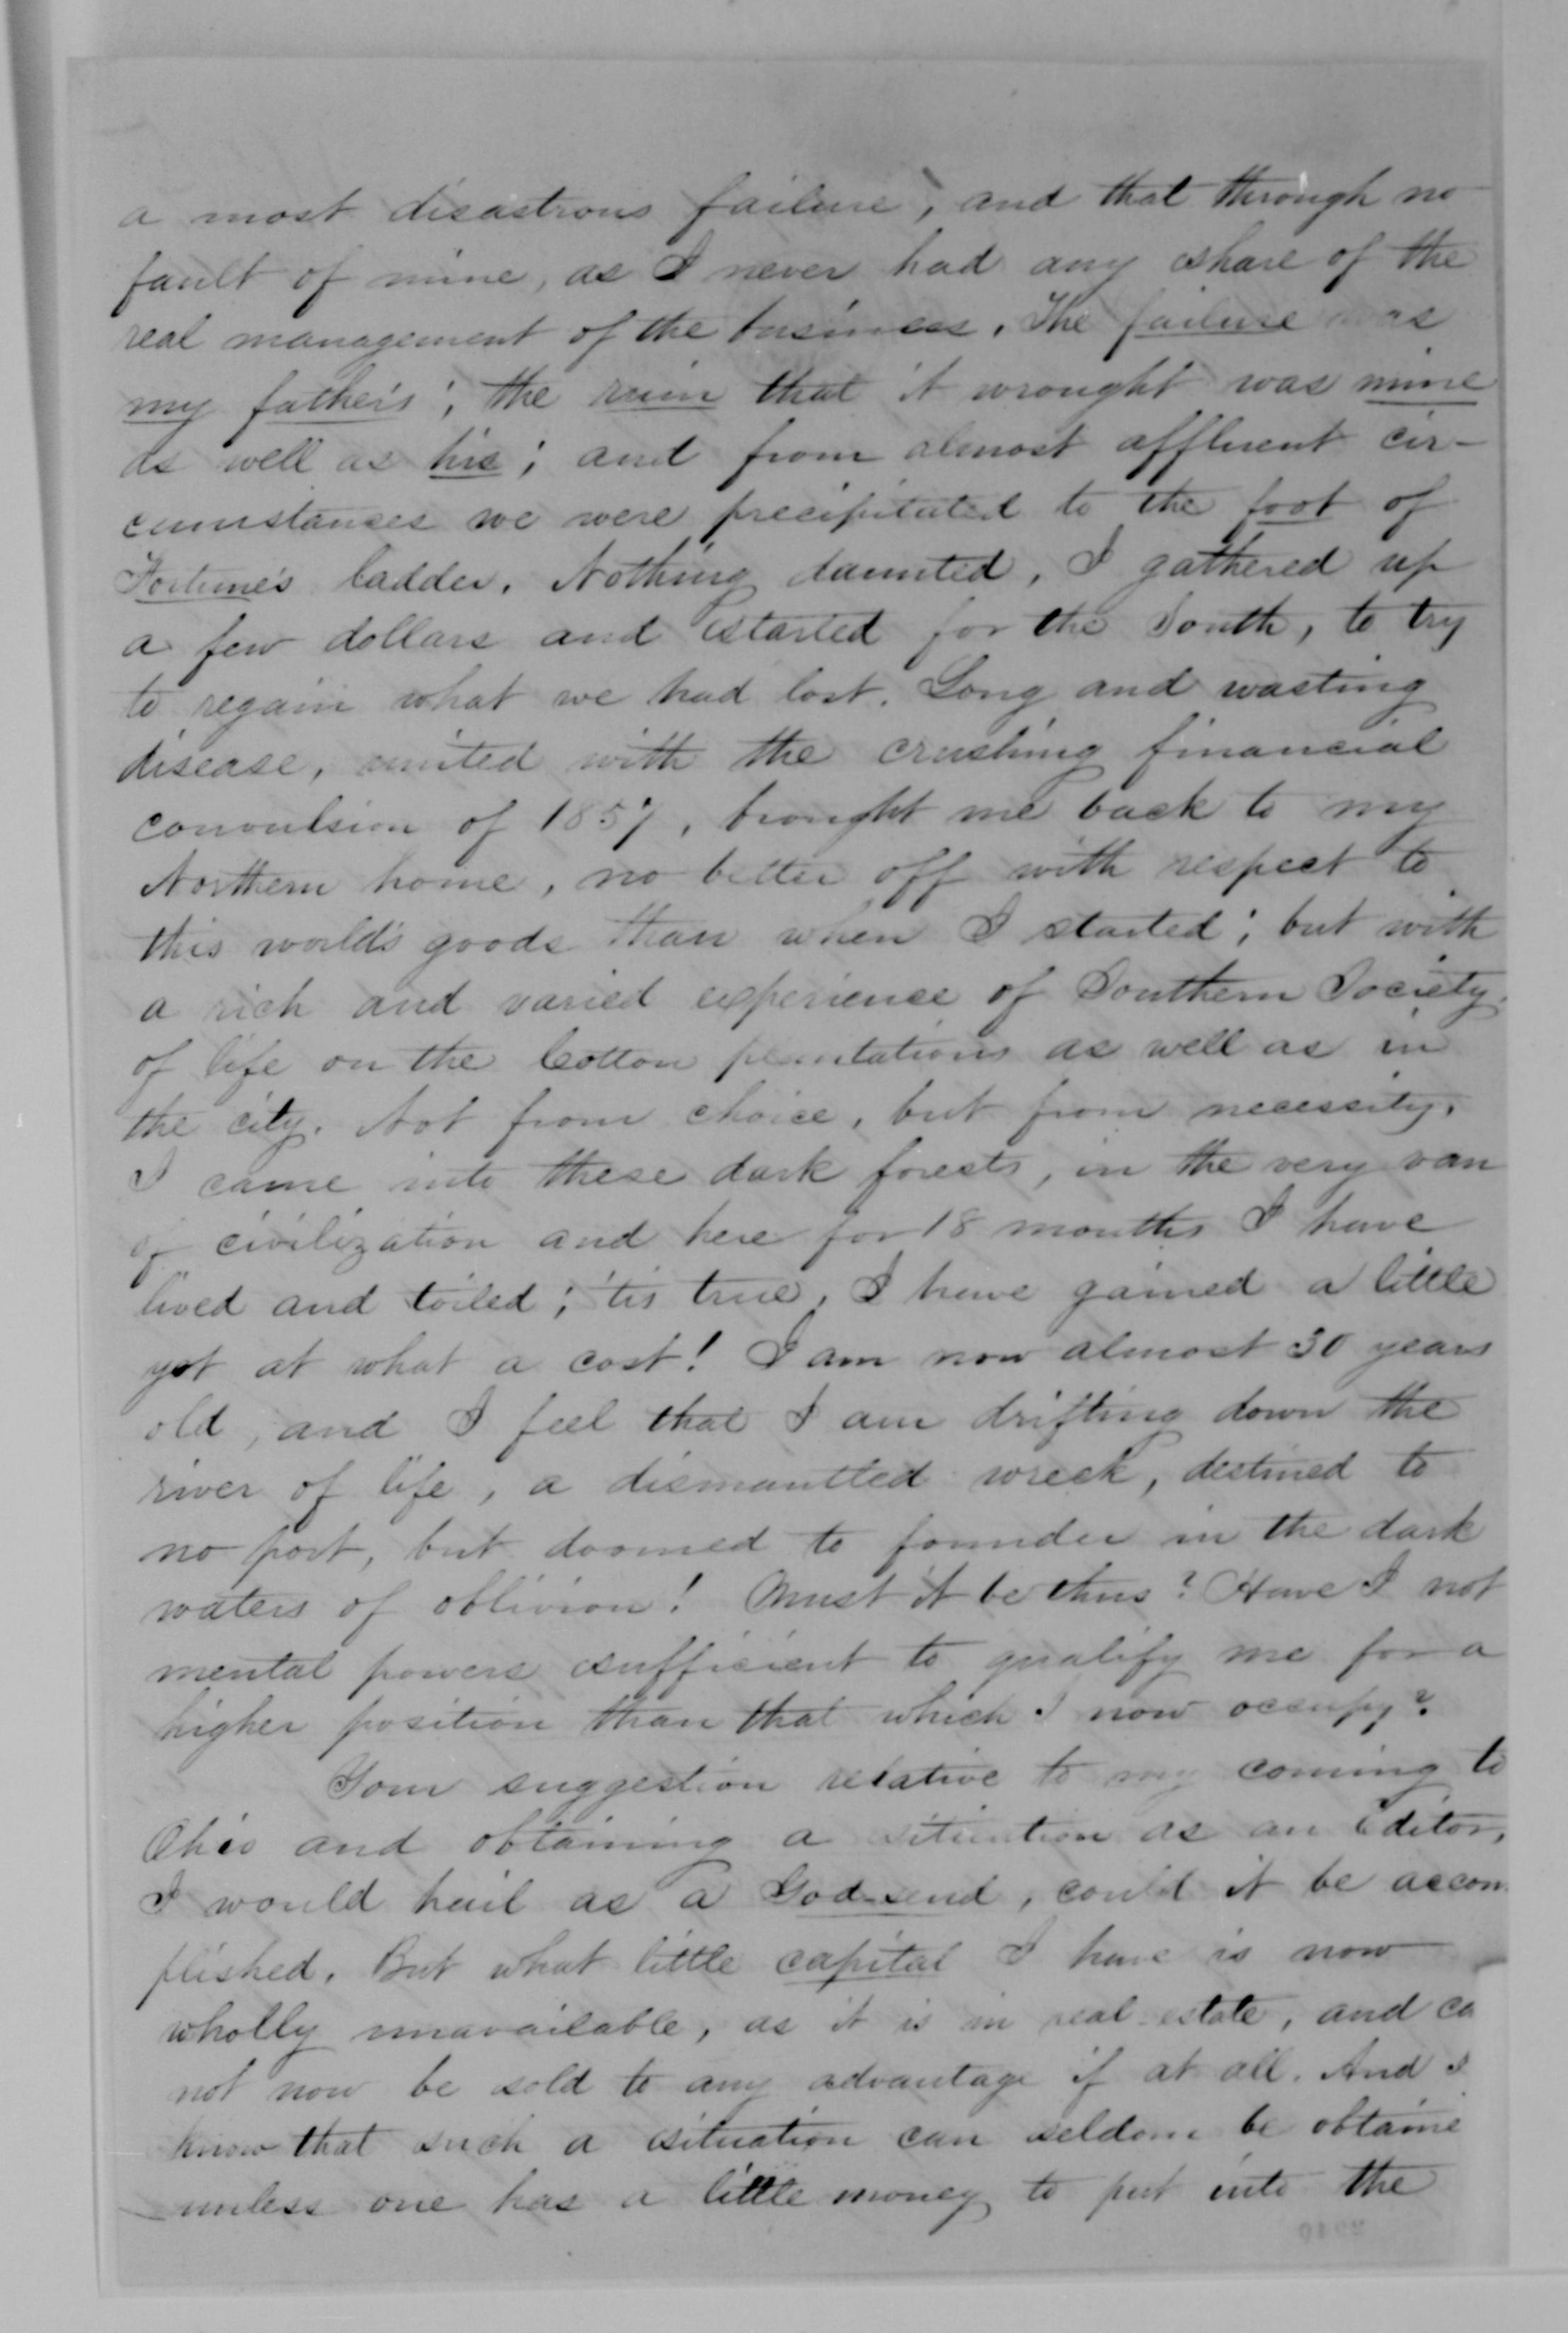 a most disastrous failure, and that through no
fault of mine, as I never had any share of the
real management of the business. The failure was
my father's; the ruin that it wrought was mine
as well as his; and from almost affluent cir-
cumstances we were precipitated to the foot of
Fortune's ladder. Nothing daunted, I gathered up
a few dollars and started for the South, to try
to regain what we had lost. Long and wasting
disease, united with the crushing financial
convulsion of 1857, brought me back to my
Northern home, no better off with respect to
this world's goods than when I started; but with
a rich and varied experience of Southern Society,
of life on the Cotton plantations as well as in
the city. Not from choice, but from necessity,
I came into these dark forests, in the very van
of civilization and here for 18 months I have
lived and toiled; 'tis true, I have gained a little
yet at what a cost! I am now almost 30 years
old, and I feel that I am drifting down the
river of life, a dismantled wreck, destined to
no port, but doomed to founder in the dark
waters of oblivion! Must it be thus? Have I not
mental powers sufficient to qualify me for a
higher position than that which I now occupy?
Your suggestion relative to my coming to
Ohio and obtaining a situation as an Editor,
I would hail as a God-send, could it be accom
plished. But what little capital I have is now
wholly unavailable, as it is in real-estate, and ca
not now be sold to any advantage if at all. And I
know that such a situation can seldom be obtaine
unless one has a little money to put into the